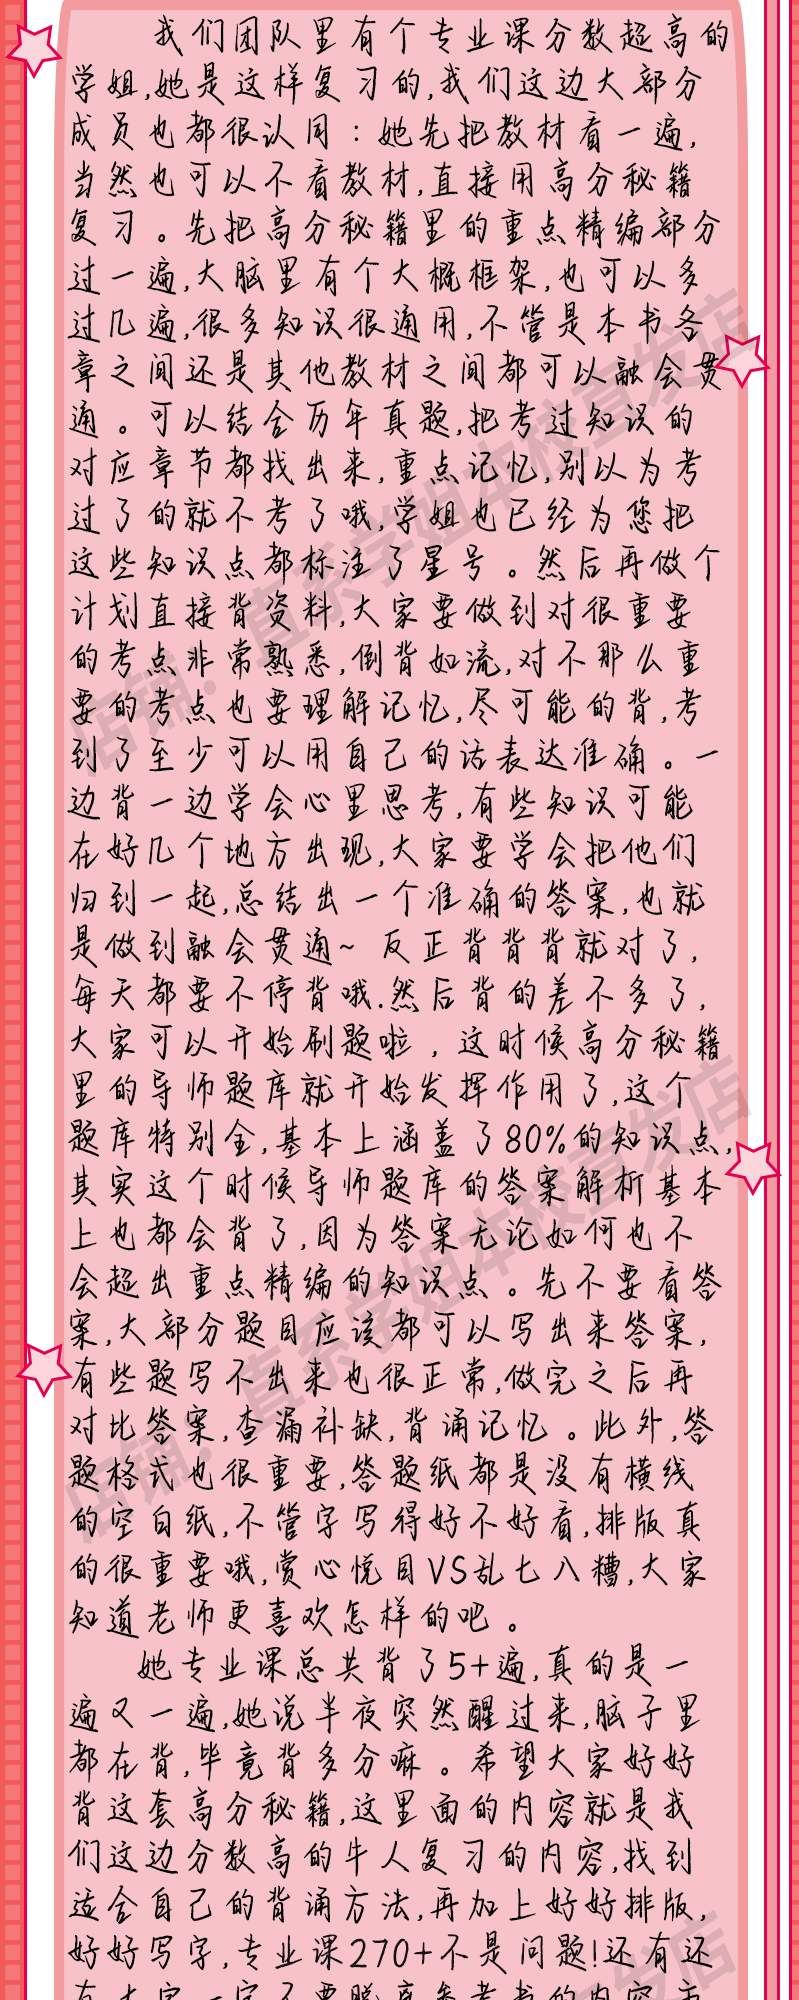 我们团队里有个专业课分数超高的
学姐,她是这样复习的,我们这边大部分
成员也都很认同：她先把教材看一遍,
当然也可以不看教材,直接用高分秘籍
复习。先把高分秘籍里的重点精编部分
过一遍,大脑里有个大概框架,也可以多
过几遍,很多知识很通用,不管是本书各
章之间还是其他教材之间都可以融会贯
通。可以结合历年真题,把考过知识的
对应章节都找出来,重点记忆,别以为考
过了的就不考了哦,学姐也已经为您把
这些知识点都标注了星号。然后再做个
计划直接背资料,大家要做到对很重要
的考点非常熟悉,倒背如流,对不那么重
要的考点也要理解记忆,尽可能的背,考
到了至少可以用自己的话表达准确。一
边背一边学会心里思考,有些知识可能
在好几个地方出现,大家要学会把他们
归到一起,总结出一个准确的答案,也就
是做到融会贯通~ 反正背背背就对了,
每天都要不停背哦.然后背的差不多了,
大家可以开始刷题啦，这时候高分秘籍
里的导师题库就开始发挥作用了,这个
题库特别全,基本上涵盖了80%的知识点,
其实这个时候导师题库的答案解析基本
上也都会背了,因为答案无论如何也不
会超出重点精编的知识点。先不要看答
案,大部分题目应该都可以写出来答案,
有些题写不出来也很正常,做完之后再
对比答案,查漏补缺,背诵记忆。此外,答
题格式也很重要,答题纸都是没有横线
的空白纸,不管字写得好不好看,排版真
的很重要哦,赏心悦目VS乱七八糟,大家
知道老师更喜欢怎样的吧。
她专业课总共背了5+遍,真的是一
遍又一遍,她说半夜突然醒过来,脑子里
都在背,毕竟背多分嘛。希望大家好好
背这套高分秘籍,这里面的内容就是我
们这边分数高的牛人复习的内容,找到
适合自己的背诵方法,再加上好好排版,
好好写字,专业课270+不是问题!还有还
店铺：直系学姐本校直发店
店铺：直系学姐本校直发店